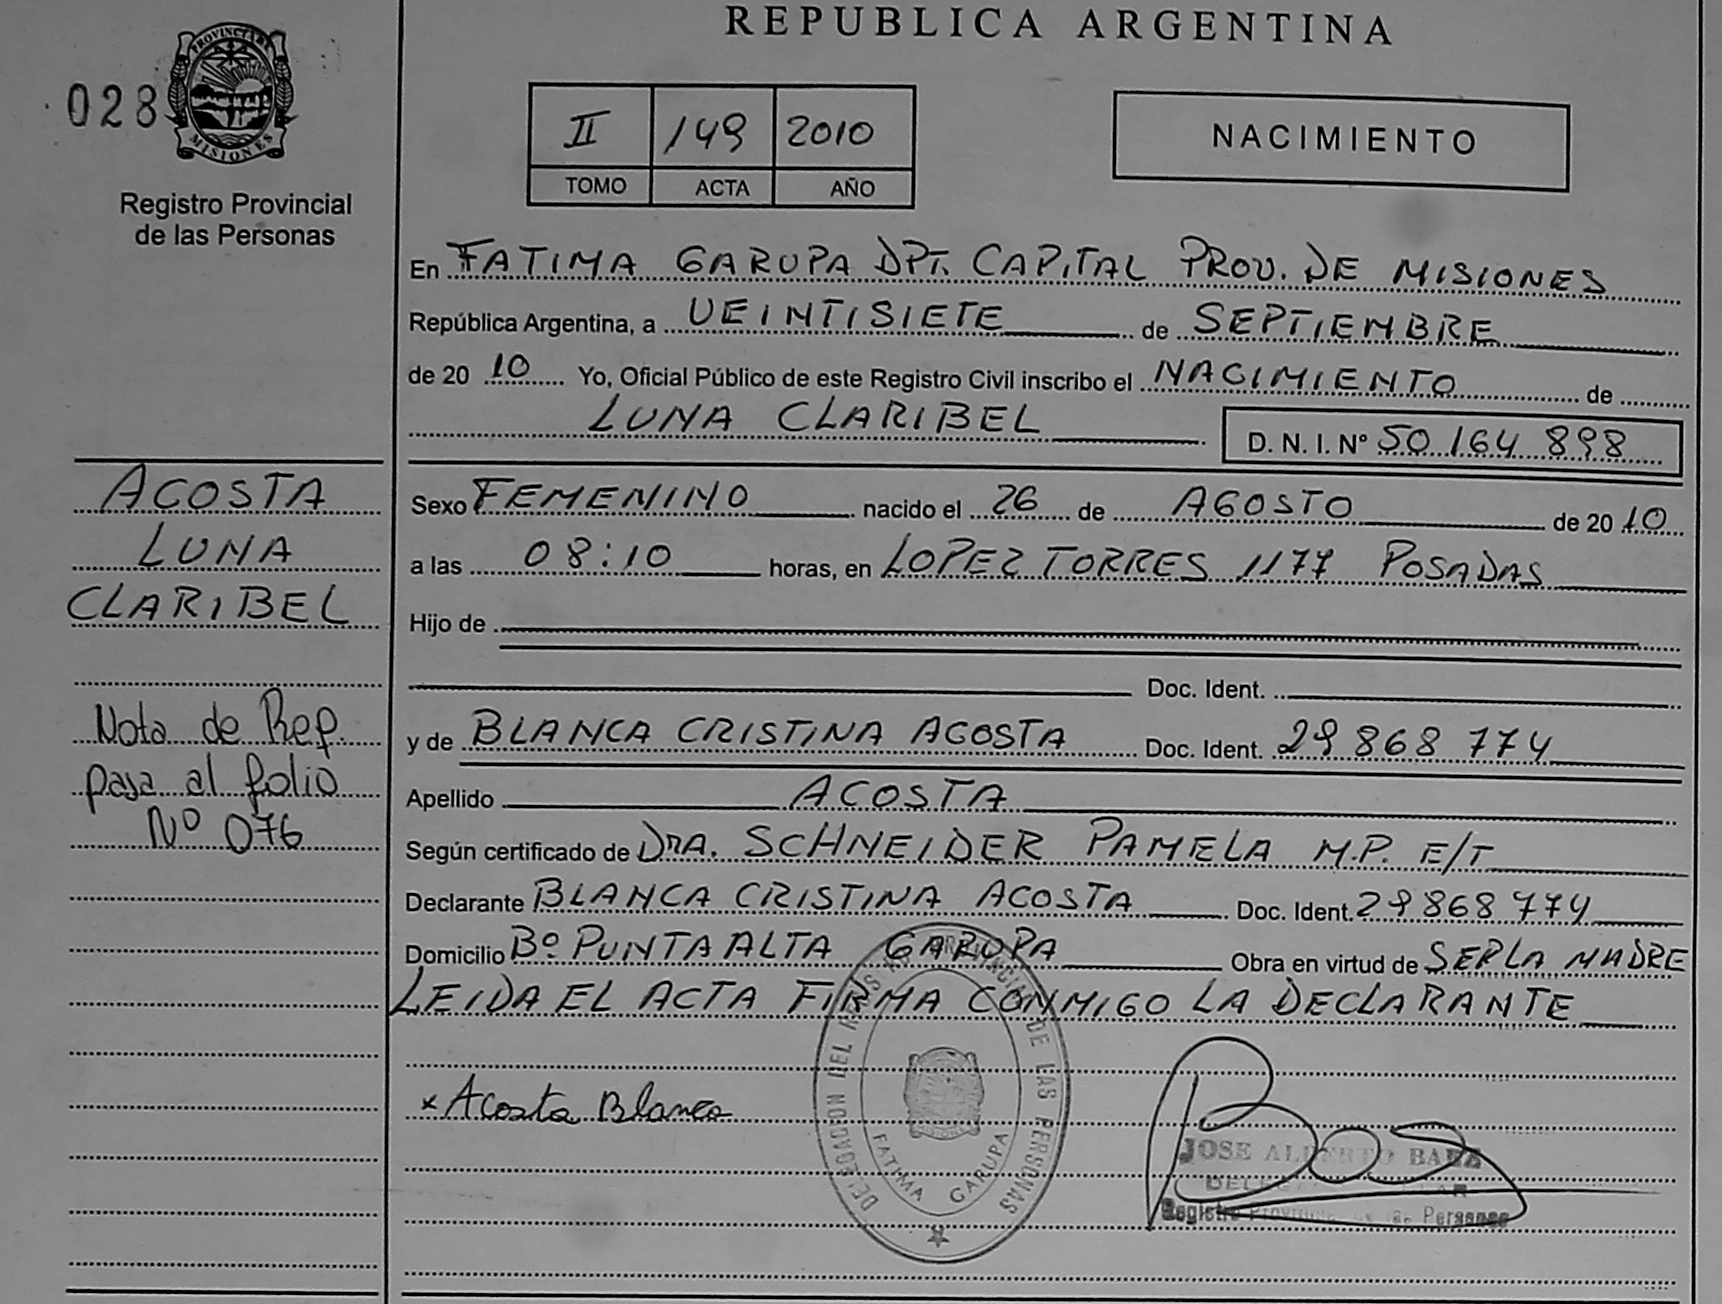 REPUBLICA ARGENTINA
028
PROVINCIA DE
MISIONES
Registro Provincial
de las Personas
II 149 2010
TOMO ACTA AÑO
NACIMIENTO
En FATIMA GARUPA DPT. CAPITAL PROV. DE MISIONES
República Argentina, a VEINTISIETE de SEPTIEMBRE
de 20 10 Yo, Oficial Público de este Registro Civil inscribo el NACIMIENTO de
LUNA CLARIBEL D. N. I. Nº 50.164 898
Sexo FEMENINO nacido el 26 de AGOSTO de 20 10
a las 08:10 horas, en LOPEZ TORRES 1177 POSADAS
Hijo de
Doc. Ident.
y de BLANCA CRISTINA ACOSTA Doc. Ident. 29 868 774
Apellido ACOSTA
Según certificado de DRA. SCHNEIDER PAMELA M.P. E/T
Declarante BLANCA CRISTINA ACOSTA Doc. Ident. 29 868 774
Domicilio Bº PUNTA ALTA GARUPA Obra en virtud de SER LA MADRE
LEIDA EL ACTA FIRMA CONMIGO LA DECLARANTE
x Acosta Blanca
ACOSTA
LUNA
CLARIBEL
Nota de Ref.
pasa al folio
Nº 076
DELEGACION DEL DE LAS PERSONAS
FATIMA GARUPA
JOSE ALBERTO
Registro Provincial de las Personas